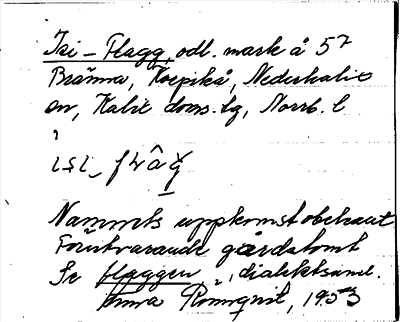 Isi-Flagg, odl. mark å 5²
Bränna, Korpikå, Nederkalix
sn, Kalix doms. tg, Norrb. l
Namnets uppkomst obekant
Förutvarande gårdstomt
Se flaggen, dialektsaml.
Anna Rönnqvist, 1953